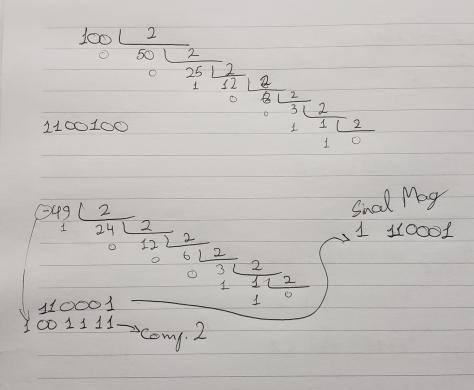 100 2
0 50 2
0 25 2
1 12 2
0 6 2
0 3 2
1 1 2
1 0
1100100
-49 2
1 24 2
0 12 2
0 6 2
0 3 2
1 1 2
1 0
Sinal Mag
1 110001
110001
1 001111 Comp. 2